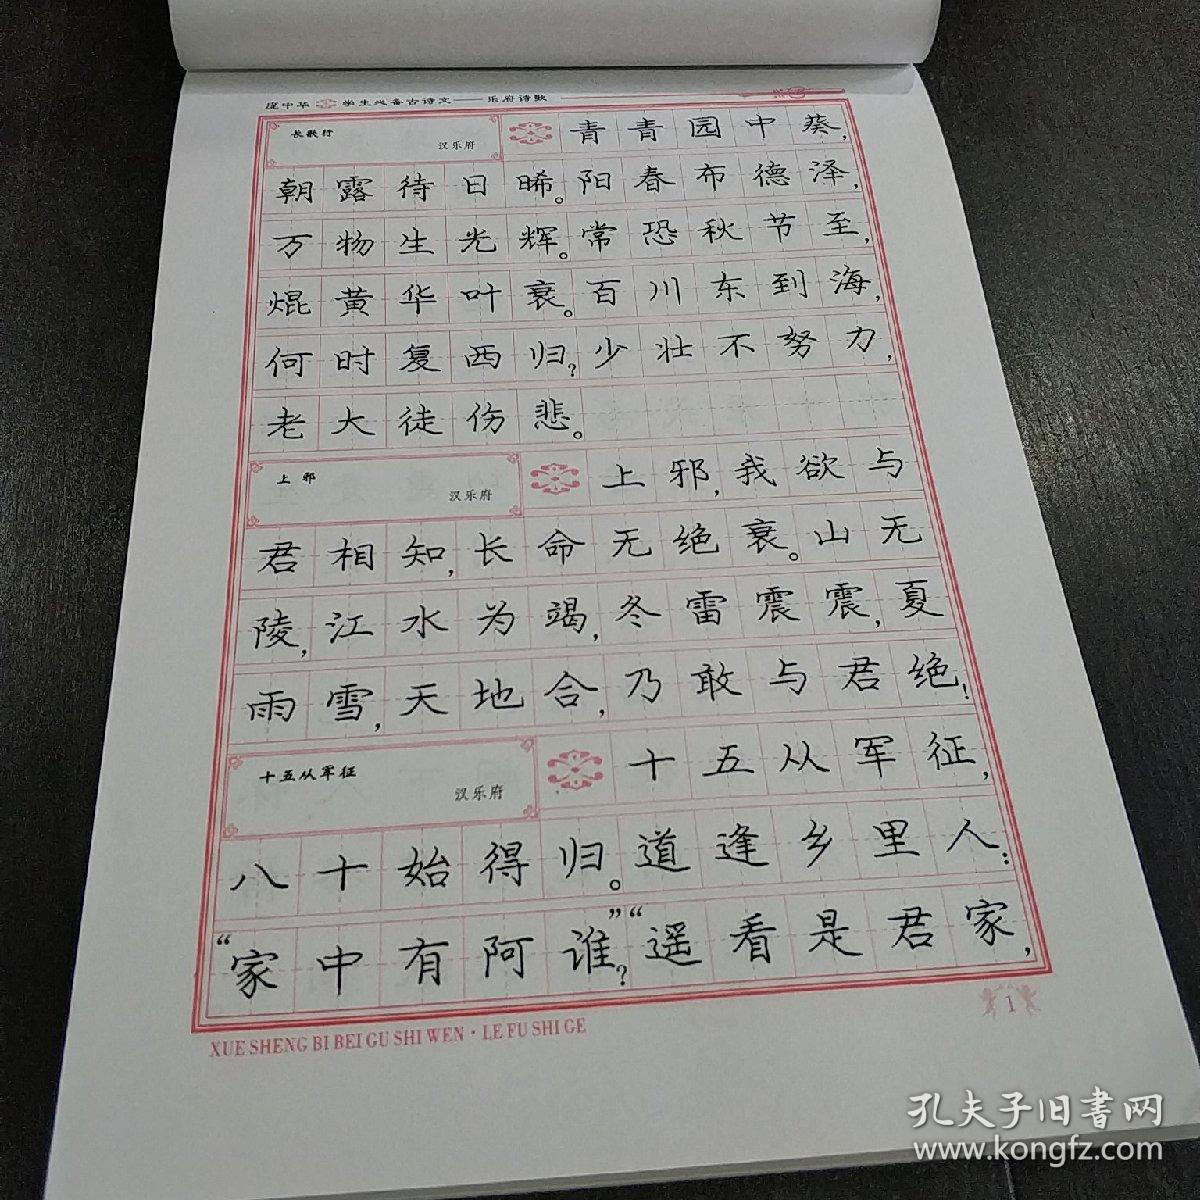 庞中华 学生必备古诗文——乐府诗歌
长歌行
汉乐府
青青园中葵,
朝露待日晞。阳春布德泽,
万物生光辉。常恐秋节至,
焜黄华叶衰。百川东到海,
何时复西归?少壮不努力,
老大徒伤悲。
上邪
汉乐府
上邪,我欲与
君相知,长命无绝衰。山无
陵,江水为竭,冬雷震震,夏
雨雪,天地合,乃敢与君绝!
十五从军征
汉乐府
十五从军征,
八十始得归。道逢乡里人:
“家中有阿谁?”“遥看是君家,
XUE SHENG BI BEI GU SHI WEN · LE FU SHI GE
1
孔夫子旧书网
www.kongfz.com